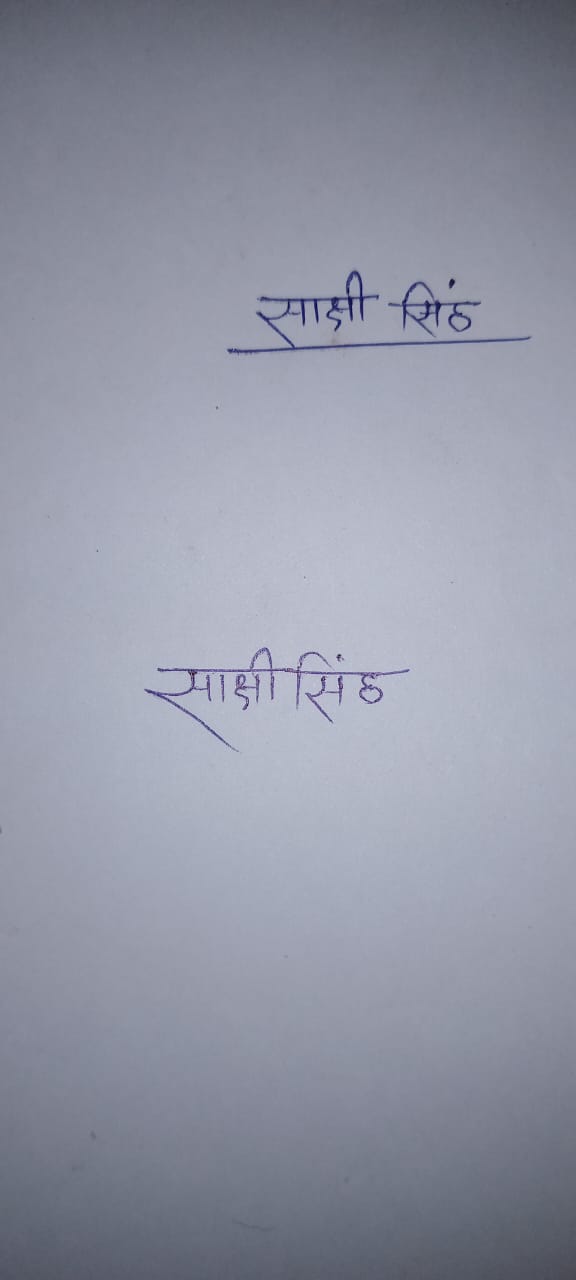 साक्षी सिंह
साक्षी सिंह